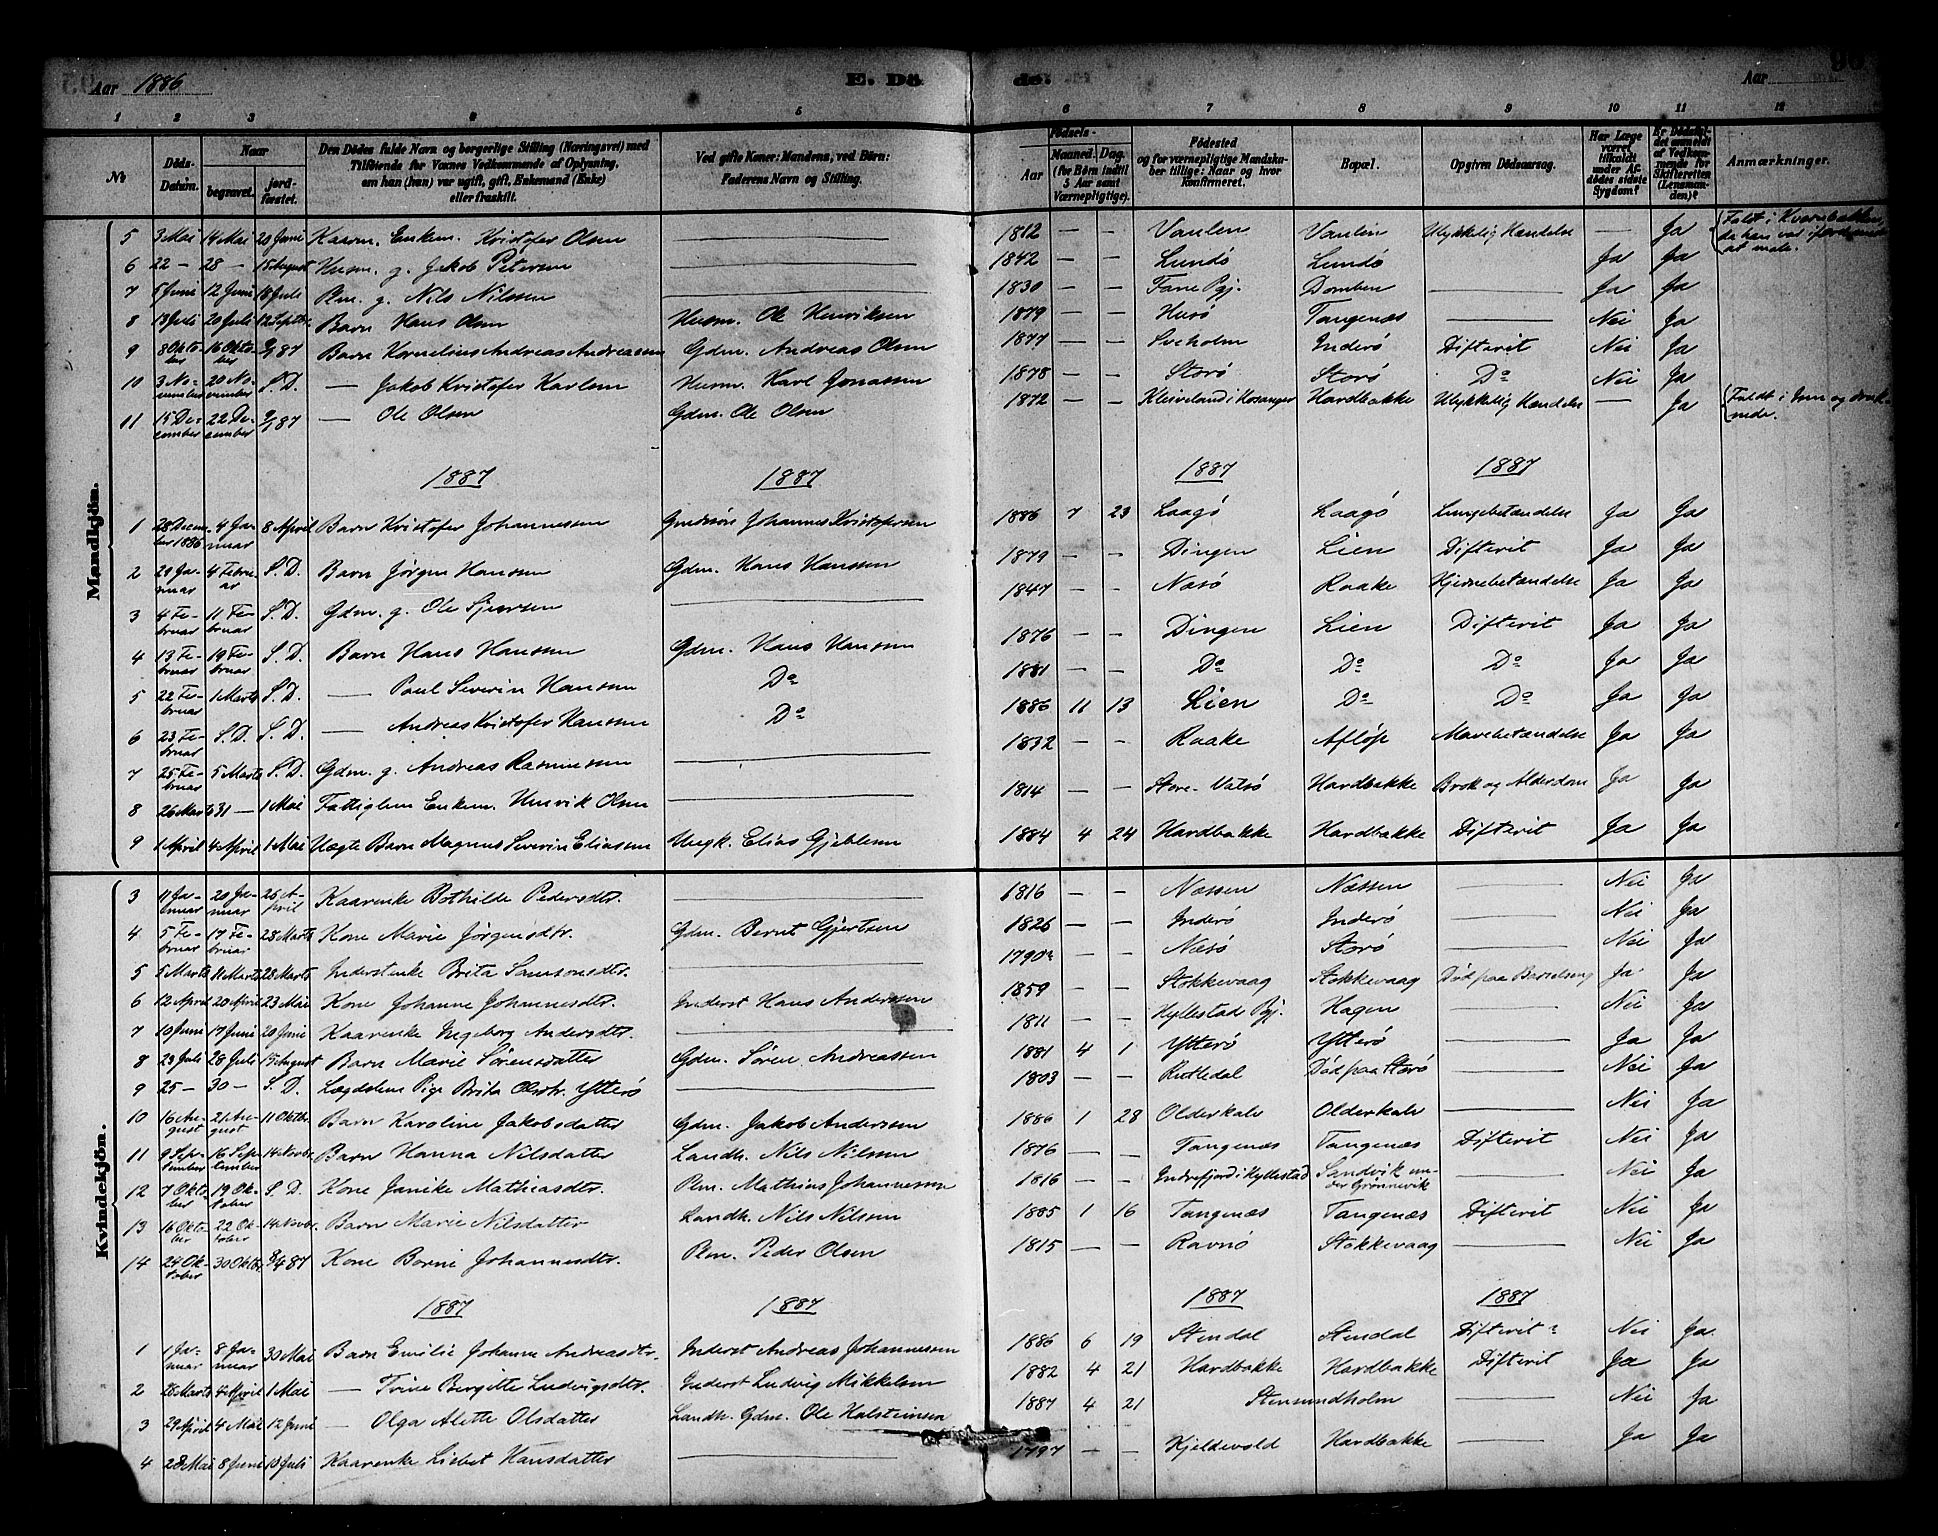 Aar 1886 E. Dö de. Aar
1 2 3 4 5 6 7 8 9 10 11 12
No Döds-Datum. Naar begravet. jordfæstet. Den Dödes fulde Navn og borgerlige Stilling (Næringsvei) med Tilföiende for Voxnes Vedkommende af Oplysning, om han (hun) var ugift, gift, Enkemand (Enke) eller fraskilt. Ved gifte Koner: Mandens, ved Börn: Faderens Navn og Stilling. Födsels- Aar Maaned. Dag. (for Börn indtil 5 Aar samt Værnepligtige). Födested og for værnepligtige Mandskaber tillige: Naar og hvor konfirmeret. Bopæl. Opgiven Dödsaarsag. Har Læge været tilkaldt under Afdödes sidste Sygdom? Er Dödsfaldet anmeldt af Vedkommende for Skifteretten (Lensmanden)? Anmærkninger.
Mandkjön.
5 3 Mai 14 Mai 20 Juni Kaarm. Enkem. Kristofer Olsen — 1812 — — Vaulen Vaulen Ulykkelig Hændelse — Ja Faldt i Kvernbækken, da han var ifærd med at male.
6 22 — 28 — 15 August Husm. g. Jakob Petersen — 1842 — — Lundö Lundö Ja Ja
7 5 Juni 12 Juni 18 Juli Plm. g. Nils Nilssen — 1830 — — Fane Pgj. Domben — Ja Ja
8 13 Juli 20 Juli 12 Septbr Barn Hans Olsen Husm. Ole Henriksen 1879 — — Husö Tangenæs — Nei Ja
9 8 Oktober 16 Oktober 9/1 87 Barn Kornelius Andreas Andreassen Gdm. Andreas Olsen 1877 — — Sveholm Inderö Difterit Nei Ja
10 3 November 20 November S. D. — Jakob Kristofer Karlsen Husm. Karl Jonassen 1878 — — Storö Storö Do Nei Ja
11 15 December 22 December 9/1 87 — Ole Olsen Gdm. Ole Olsen 1872 — — Kleiveland i Hosanger Hardbakke Ulykkelig Hændelse — Ja Faldt i og druknede.
1887 1887 1887 1887
1 28 December 1886 4 Januar 8 April Barn Kristofer Johannessen Johannes Kristofersen 1886 7 23 Laagö Laagö Lungebetændelse Ja Ja
2 29 Januar 4 Februar S. D. Barn Jörgen Hanssen Gdm. Hans Hanssen 1879 — — Dingen Lien Difterit Ja Ja
3 4 Februar 11 Februar S. D. Gdm. g. Ole Sjursen — 1847 — — Næsö Raake Hjernebetændelse Ja Ja
4 13 Februar 19 Februar S. D. Barn Hans Hanssen Gdm. Hans Hanssen 1876 — — Dingen Lien Difterit Ja Ja
5 22 Februar 1 Marts S. D. — Paul Severin Hanssen Do 1881 — — Do Do Do Ja Ja
6 23 Februar S. D. S. D. — Andreas Kristofer Hanssen Do 1886 11 13 Lien Do Do Ja Ja
7 25 Februar 5 Marts S. D. Gdm. g. Andreas Rasmussen — 1832 — — Raake Aflöp Mavebetændelse Ja Ja
8 26 Marts 31 — 1 Mai Fattiglem Enkem. Henrik Olsen — 1814 — — Store-Valsö Hardbakke Brok og Alderdom Ja Ja
9 1 April 4 April 1 Mai Uægte Barn Magnus Severin Eliassen Ungk. Elias 1884 4 24 Hardbakke Hardbakke Difterit Ja Ja
Kvindekjön.
3 11 Januar 20 Januar 26 April Kaarenke Bothilde Pedersdtr. — 1816 — — Næssen Næssen — Nei Ja
4 5 Februar 17 Februar 28 Marts Kone Marie Jörgensdtr. Gdm. Bernt Gjertsen 1826 — — Inderö Inderö — Nei Ja
5 5 Marts 11 Marts 28 Marts Inderstenke Brita Samsonsdtr. — 1790 — — Næsö Storö — Nei Ja
6 12 April 20 April 23 Mai Kone Johanne Johannesdtr. Inderst Hans Anderssen 1859 — — Stokkevaag Stokkevaag Död paa Barselseng Ja Ja
7 10 Juni 17 Juni 20 Juni Kaarenke Ingeborg Andersdtr. — 1811 — — Hyllestad Pgj. Hagen — Nei Ja
8 23 Juli 28 Juli 15 August Barn Marie Sörensdatter Gdm. Sören Andreassen 1881 4 1 Ytterö Ytterö — Ja Ja
9 25 — 30 — S. D. Lægdslem Pige Brita Olsdtr. Ytterö — 1803 — — Rutledal Död paa Storö — Nei Ja
10 16 August 21 August 11 Oktbr Barn Karoline Jakobsdatter Gdm. Jakob Anderssen 1886 1 28 Olderkalv Olderkalv — Nei Ja
11 9 September 16 September 14 Novbr. Barn Hanna Nilsdatter Landh. Nils Nilssen 1876 — — Tangenæs Tangenæs Difterit Nei Ja
12 7 Oktober 19 Oktober S. D. Kone Janike Mathiasdtr. Plm. Mathias Johannessen 1816 — — Indrefjord i Hyllestad Sandvik under Grönnevik — Nei Ja
13 16 Oktober 22 Oktober 14 Novbr. Barn Marie Nilsdatter Landh. Nils Nilssen 1885 1 16 Tangenæs Tangenæs Difterit Nei Ja
14 24 Oktober 30 Oktbr. 8/4 87 Kone Borni Johannesdtr. Plm. Peder Olsen 1815 — — Ravnö Stokkevaag — Nei Ja
1887 1887 1887 1887
1 1 Januar 8 Januar 30 Mai Barn Emilie Johanne Andreasdtr. Inderst Andreas Johannessen 1886 6 19 Stendal Stendal Difterit ? Nei Ja
2 28 Marts 4 April 1 Mai — Trine Bergitte Ludvigsdtr. Inderst Ludvig Mikkelsen 1882 4 21 Hardbakke Hardbakke Difterit Ja Ja
3 29 April 4 Mai 12 Juni — Olga Alette Olsdatter Landh. Gdm. Ole Halsteinsen 1887 4 21 Stensundholm — Nei Ja
4 28 Mai 8 Juni 18 Juli Kaarenke Lisbet Hansdatter — 1797 — — Kjeldevold Hardbakke — Ja Ja